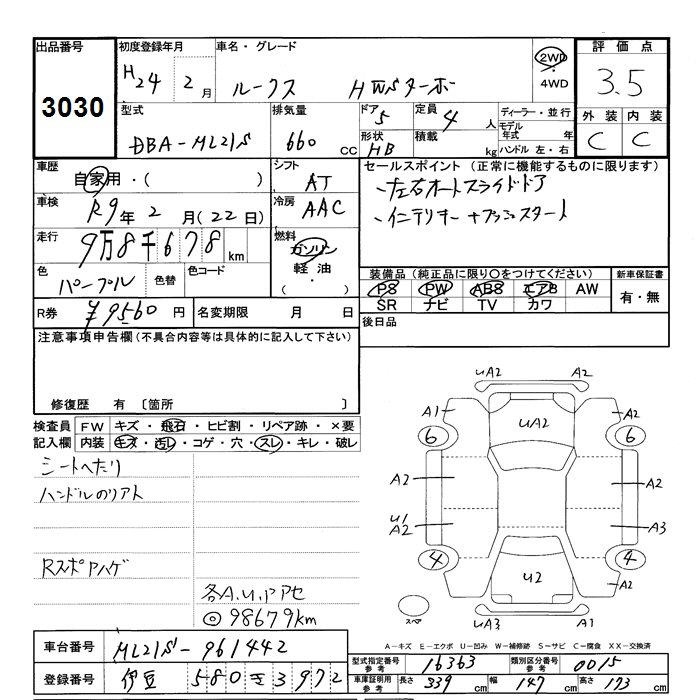 出品番号
3030
初度登録年月
H24 2月
車名・グレード
ルークス HWSターボ
2WD
・
4WD
評価点
3.5
外装 内装
C C
型式
DBA-ML21S
排気量
660 CC
ドア 5
形状 HB
定員 4人
積載 kg
ディーラー・並行
モデル年式 年
ハンドル 左・右
車歴
自家用・( )
シフト
AT
セールスポイント (正常に機能するものに限ります)
・左右オートスライドドア
・インテリキー +プッシュスタート
車検
R9年 2月(22日)
冷房
AAC
走行
9万8千678km
燃料
ガソリン
軽油
( ・ )
色
パープル
色替
色コード
装備品 (純正品に限り○をつけてください)
PS PW ABS エアB AW
SR ナビ TV カワ
新車保証書
有・無
R券 ¥9560円
名変期限 月 日
後日品
注意事項申告欄(不具合内容等は具体的に記入して下さい)
修復歴 有 〔箇所 〕
検査員記入欄
FW キズ・飛石・ヒビ割・リペア跡・×要
内装 キズ・汚レ・コゲ・穴・スレ・キレ・破レ
シートへたり
ハンドルのリアト
Rスポアハゲ
各A.U.Pアセ
◎98679km
UA2 A2
A1 UA2 A2
6 6
A2 A2
U1 A2 A3
4 4
U2 A2 A1
スペア
UA3 A1
A-キズ E-エクボ U-凹み W-補修跡 S-サビ C-腐食 XX-交換済
車台番号 ML21S-961442
登録番号 伊豆 580 き 3972
型式指定番号参考 16363
類別区分番号参考 0015
車庫証明用参考 長さ 339cm 幅 147cm 高さ 173cm